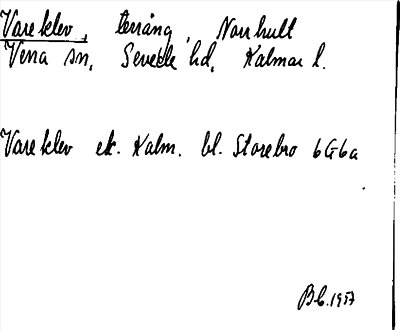 Vareklev, terräng, Norrhult
Vena sn, Sevede hd, Kalmar l.
Vareklev ek. Kalm. bl. Storebro 6G6a
1957